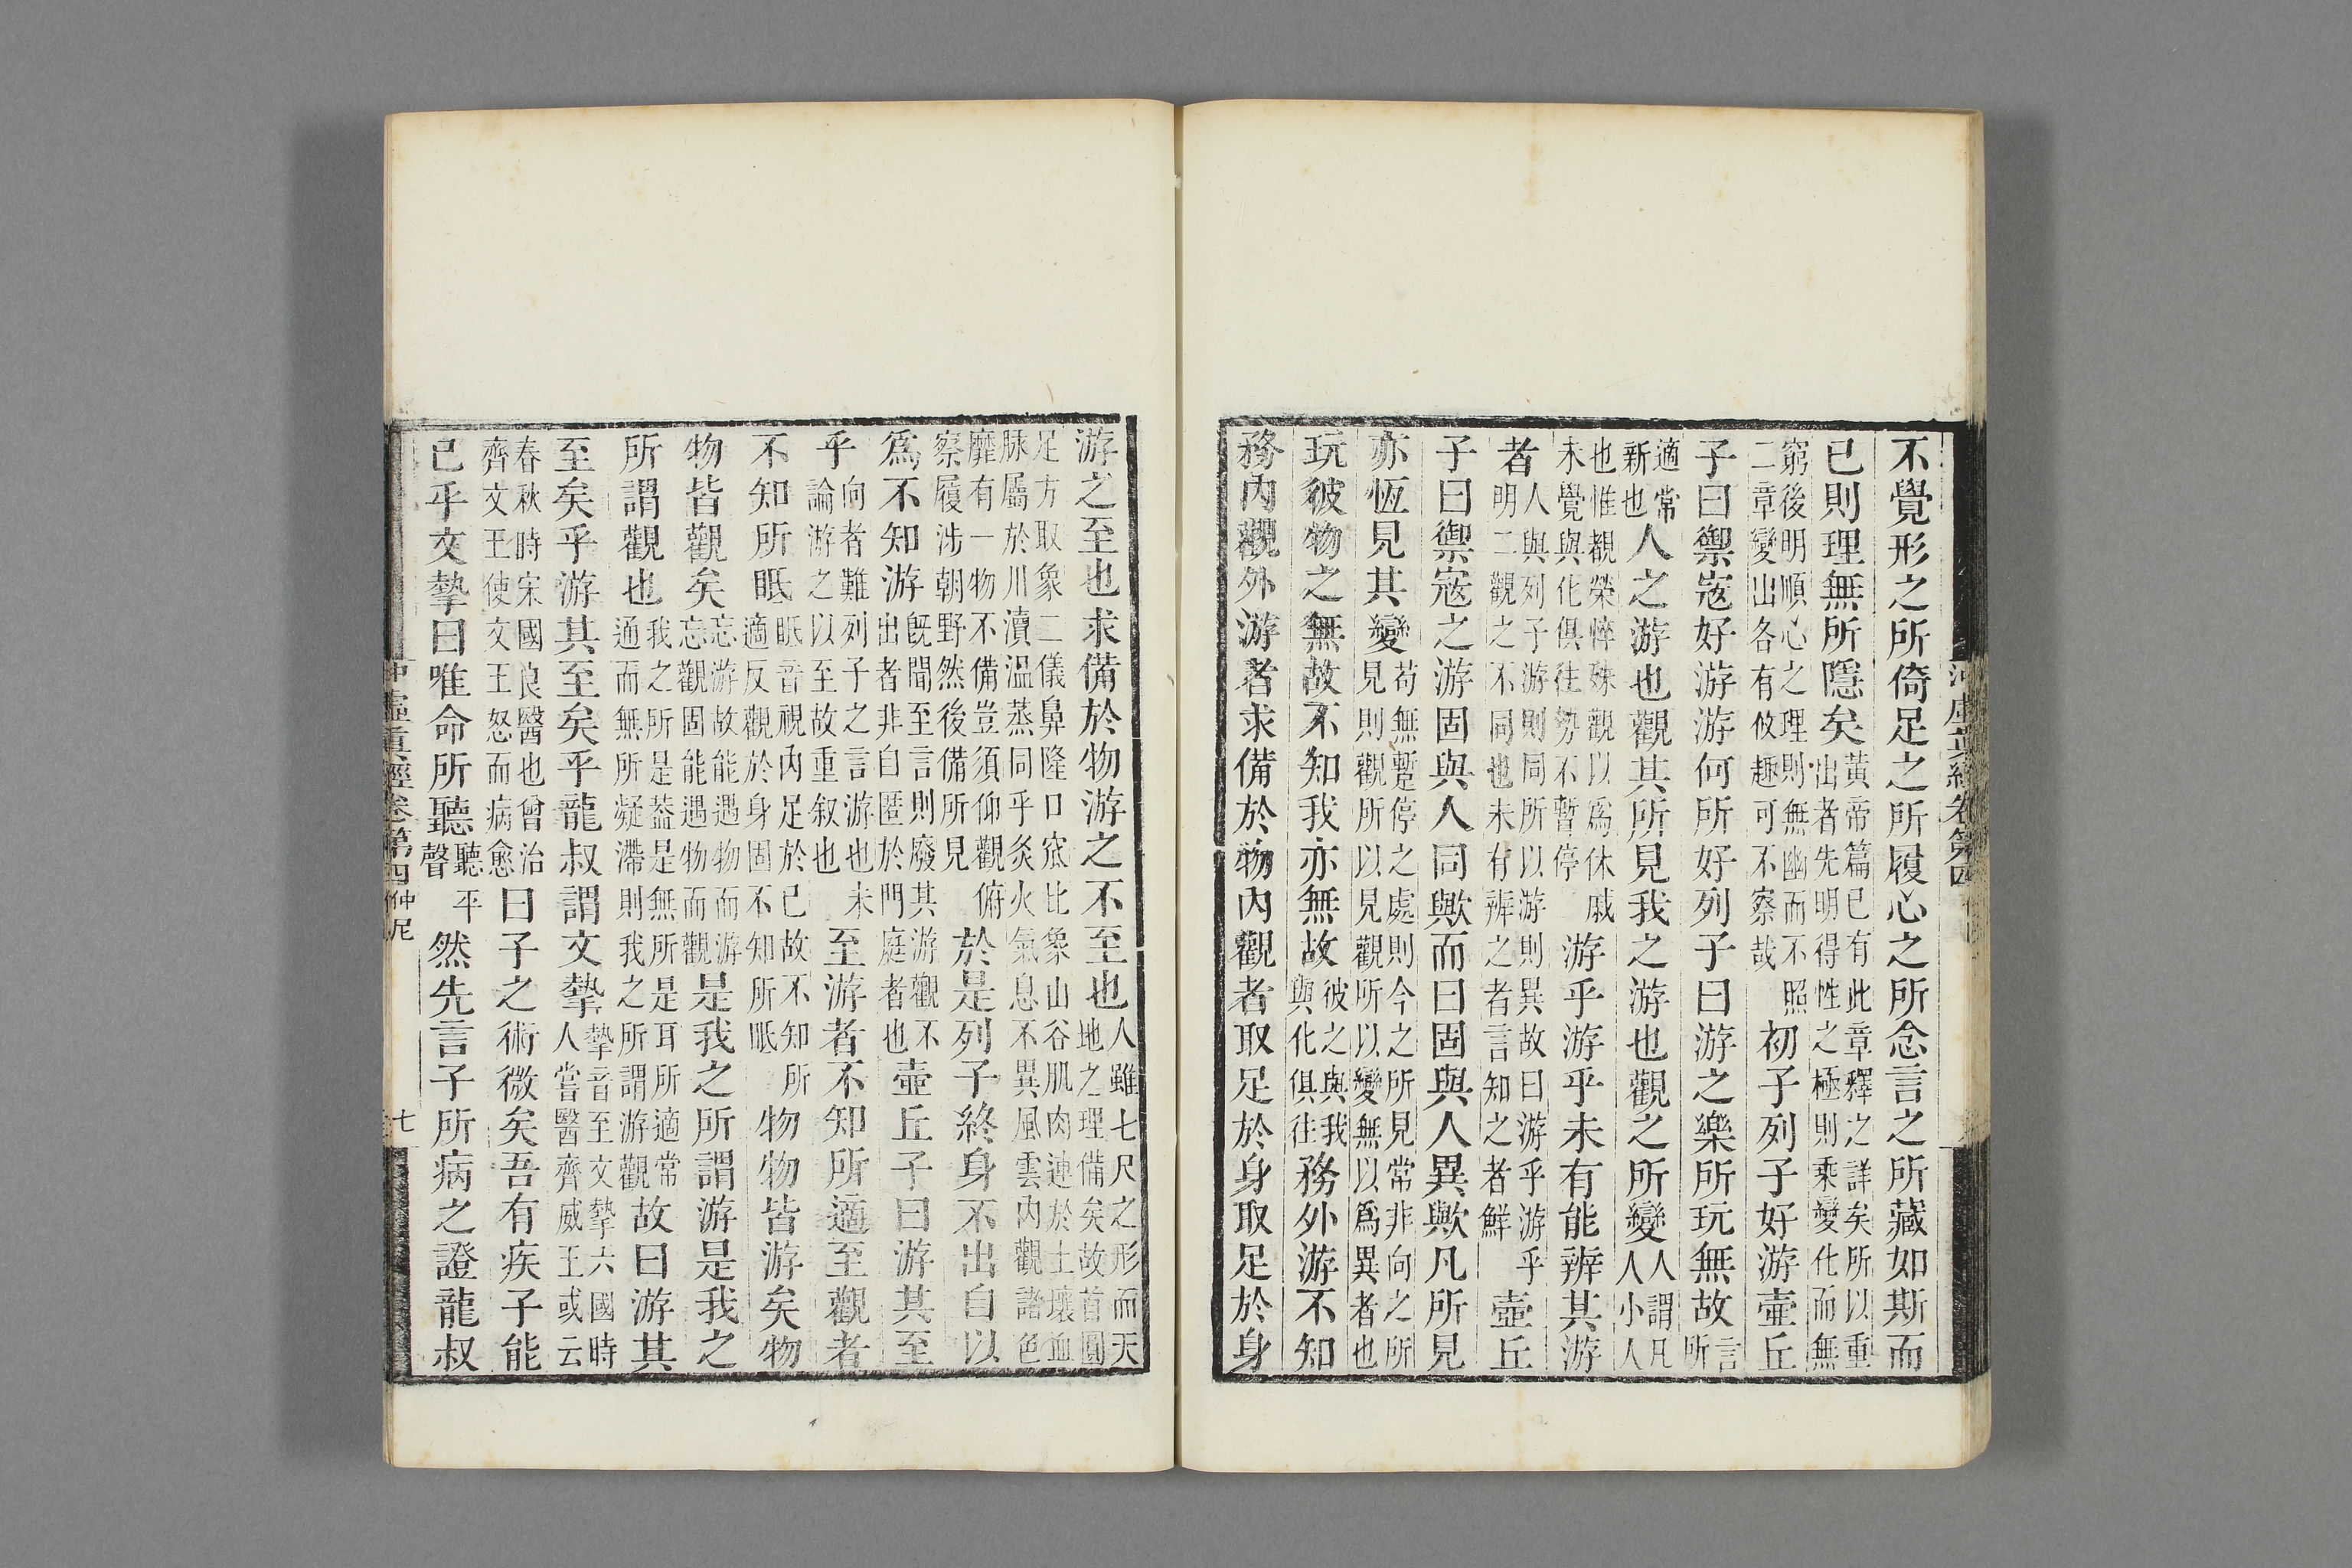 不覺形之所倚足之所履心之所念言之所藏如斯而
已則理無所隱矣黃帝篇已有此章釋之詳矣所以重出者先明得性之極則乘變化而無
窮後明順心之理則無幽而不照二章變出各有攸趣可不察哉初子列子好游壺丘
子曰禦寇好游游何所好列子曰游之樂所玩無故言所
適常新也人之游也觀其所見我之游也觀之所變人謂凡人小人
也惟覩榮悴殊觀以爲休戚未覺與化俱往勢不暫停游乎游乎未有能辨其游
者人與列子游則同所以游則異故曰游乎游乎明二觀之不同也未有辨之者言知之者鮮壺丘
子曰禦寇之游固與人同歟而曰固與人異歟凡所見
亦恆見其變苟無蹔停之處則今之所見常非向之所見則觀所以見觀所以變無以爲異者也
玩彼物之無故不知我亦無故彼之與我與化俱往務外游不知
務內觀外游者求備於物內觀者取足於身取足於身
游之至也求備於物游之不至也人雖七尺之形而天地之理備矣故首圓
足方取象二儀鼻隆口窊比象山谷肌肉連於土壤血脉屬於川瀆溫蒸同乎炎火氣息不異風雲內觀諸色
靡有一物不備豈須仰觀俯察履涉朝野然後備所見於是列子終身不出自以
爲不知游旣聞至言則廢其游觀不出者非自匿於門庭者也壺丘子曰游其至
乎向者難列子之言游也未論游之以至故重叙也至游者不知所適至觀者
不知所眡眡音視內足於己故不知所適反觀於身固不知所眡物物皆游矣物
物皆觀矣忘游故能遇物而游忘觀固能遇物而觀是我之所謂游是我之
所謂觀也我之所是蓋是無所是耳所適常通而無所凝滯則我之所謂游觀故曰游其
至矣乎游其至矣乎龍叔謂文摯摯音至文摯六國時人嘗醫齊威王或云
春秋時宋國良醫也曾治齊文王使文王怒而病愈曰子之術微矣吾有疾子能
已乎文摯曰唯命所聽聽平聲然先言子所病之證龍叔
冲虛眞經卷第四仲尼 七